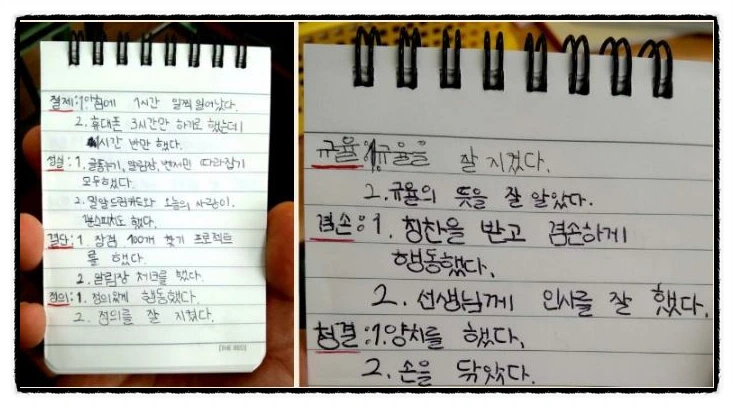 절제:1.아침에 1시간 일찍 일어났다.
2. 휴대폰 3시간만 하기로 했는데
1시간 반만 했다.
성실: 1. 글똥누기, 알림장, 벤저민 따라잡기
모두했다.
2. 밀알드림카드와 오늘의 사랑이.
1분스피치도 했다.
결단: 1. 장점 100개 찾기 프로젝트
를 했다.
2. 알림장 체크를 했다.
정의: 1. 정의롭게 행동했다.
2. 정의를 잘 지켰다.
규율:1.규율을 잘 지켰다.
2.규율의 뜻을 잘 알았다.
겸손: 1. 칭찬을 받고 겸손하게
행동했다.
2. 선생님께 인사를 잘 했다.
청결:1.양치를 했다.
2. 손을 닦았다.